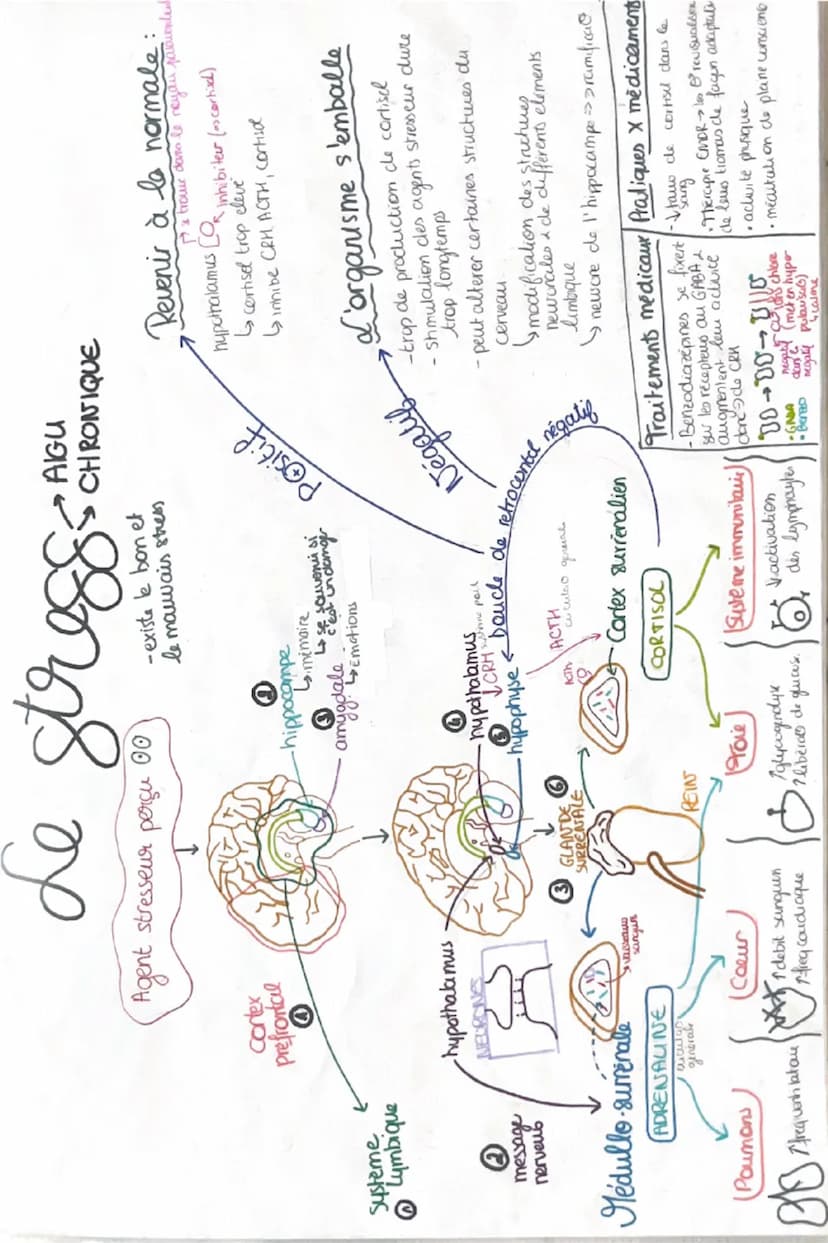 Le stress
→ AIGU
→ CHRONIQUE
- existe le bon et
le mauvais stress
Agent stresseur perçu
cortex
prefrontal
①
système
lymbique
①
②
hippocampe
↳ mémoire
↳ se souvenir si
c'est un danger
③
amygdale
↳ émotions
hypothalamus
NEURONES
②
message
nerveux
④
hypothalamus
↓ CRH
⑤
hypophyse
ACTH
③
GLANDE
SURRÉNALE
⑥
REIN
vaisseaux
sanguin
Médullo-surrénale
ADRENALINE
Cortex surrénalien
CORTISOL
Poumons
↗ frequ ventilatoire
Coeur
↗ debit sanguin
↗ freq cardiaque
Foie
↗ glycogénolyse
↗ libérac° de glucos.
Système immunitaire
↘ activation
des lymphocytes
boucle de rétrocontrôle négatif
Positif
Négatif
Revenir à la normale:
hypothalamus
inhibiteur (→ cortisol)
↳ cortisol trop elevé
↳ inhibe CRH, ACTH, cortisol
L'organisme s'emballe
- trop de production de cortisol
- stimulation des agents stresseur dure
trop longtemps
- peut altérer certaines structures du
cerveau
↳ modification des structures
neuronales & de différents elments
limbique
↳ neurone de l'hippocampe => ↘ ramificat°
Traitements médicaux
- Benzodiazépines se fixent
sur les récepteurs au GABA &
augmentent leur activité
donc ↘ de CRH
• GABA
• Benzo
Pratiques x médicament
- ↓ taux de cortisol dans le
sang
• Thérapie EMDR →
de leurs traumas de façon adaptée
• activité physique
• méditation de pleine conscience